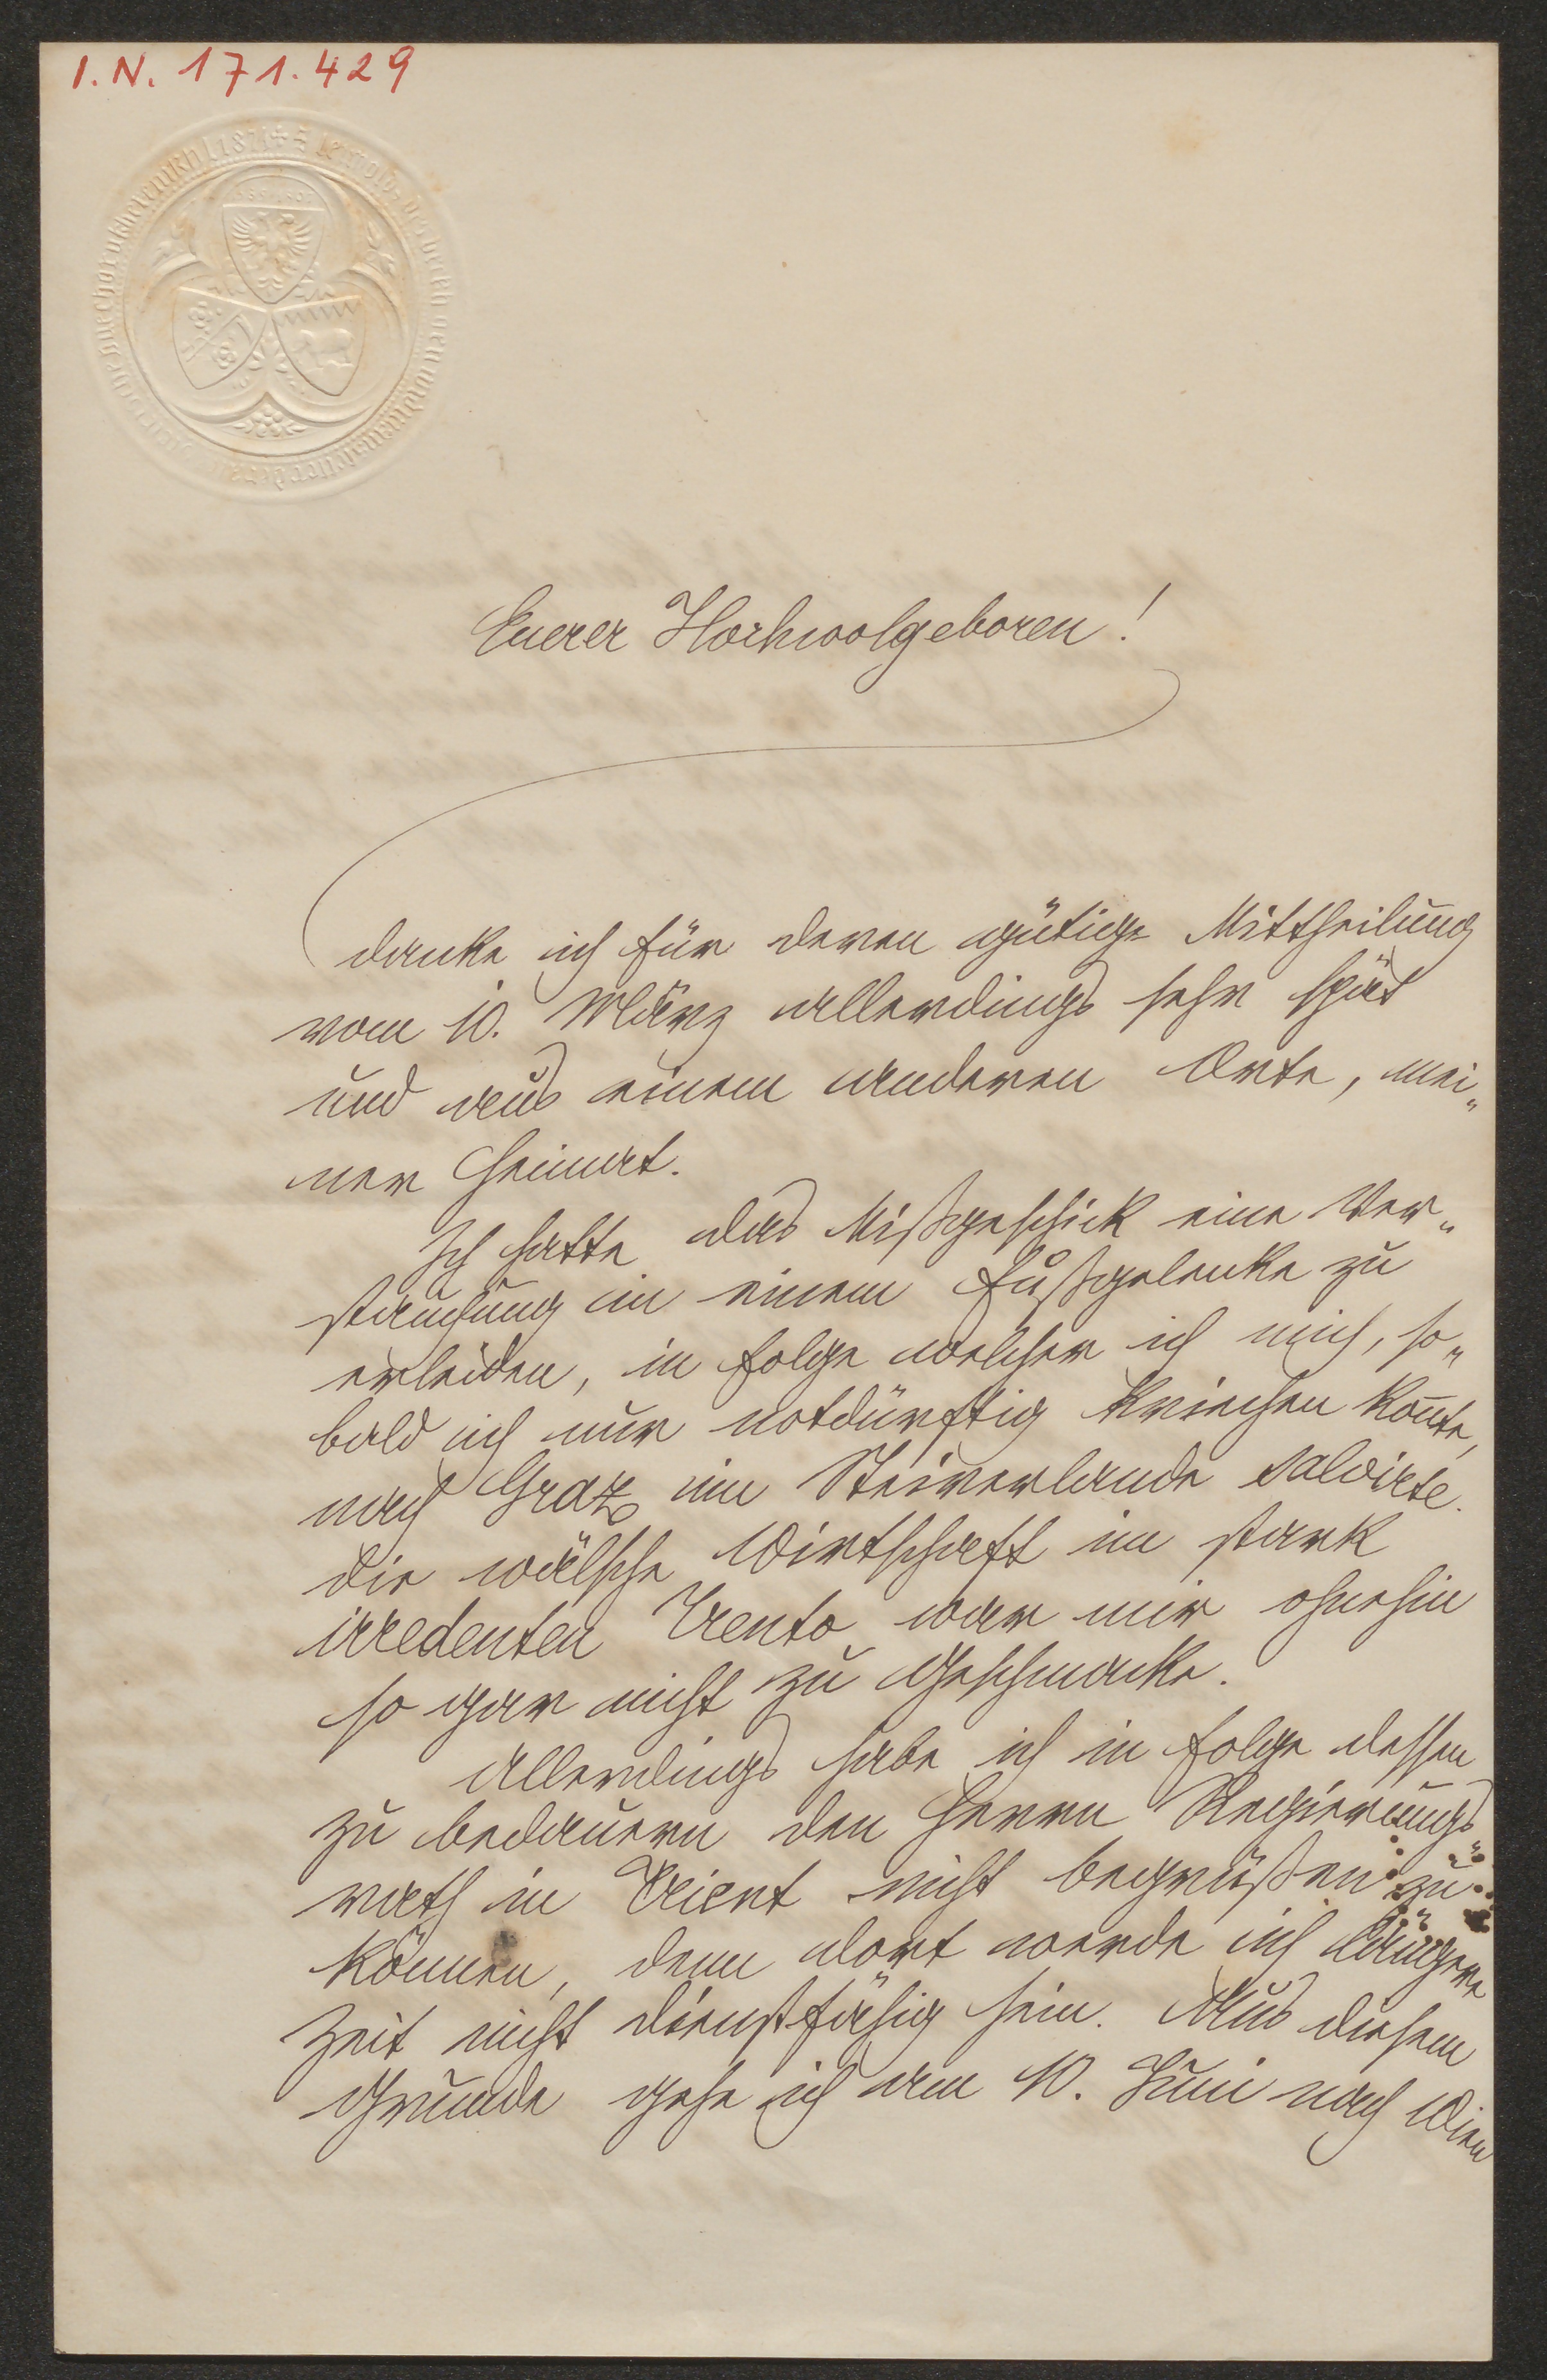 I.N. 171.429
Euerer Hochwolgeboren!
danke ich für deren gütige Mittheilung
vom 10. März allerdings sehr spät
und aus einem anderen Orte, mei„
ner Heimat.
Ich hatte das Mißgeschick eine Ver„
stauchung im einem Fußgelenke zu
erleiden, in Folge welcher ich mich, so„
bald ich nur notdürftig kriechen konte,
nach Graz im Steirerlande salvirte.
Die wälsche Wirtschaft im stark
irredenten Trento war mir ohnehin
so gar nicht zu Geschmacke.
Allerdings habe ich in Folge dessen
zu bedauern den Herrn Regierungs„
rath in Trient nicht begrüßen zu
können, denn dort werde ich längere
Zeit nicht dienstfähig sein. Aus diesem
Grunde gehe ich am 10. Juni nach Wien